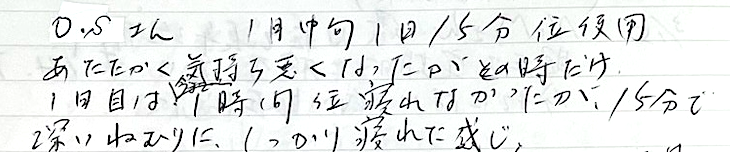 O.Sさん 1月中旬1日15分位使用
あたたかく気持ち悪くなったがその時だけ
1日目は1時間位寝れなかったが、15分で
深いねむりに、しっかり寝れた感じ。